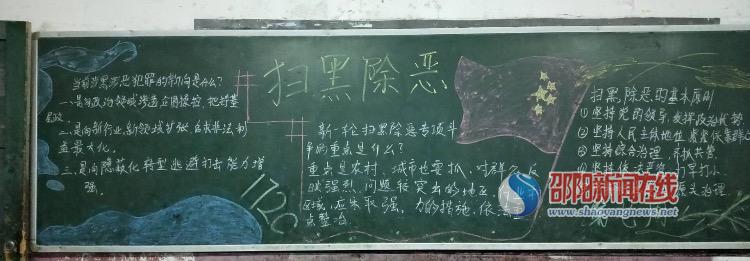 扫黑除恶
当前涉黑涉恶犯罪的新动向是什么？
一、是向政治领域渗透企图操控、把持基
层政
二、是向新行业、新领域扩张，台非法利
益最大化。
三、是向隐蔽化转型逃避打击能力增
强。
新一轮扫黑除恶专项斗
争的重点是什么？
重点是农村，城市也要抓，对群众反
映强烈、问题较突出的地区、
区域，应采取强 力的措施，依法
点整治。
1720
扫黑除恶的基本原则
①坚持党的领导，发挥政治优势
②坚持人民主体地位，紧紧依靠群众
③坚持综合治理、齐抓共管
④坚持依法严惩、打早打小
治理
邵阳新闻在线
www.shaoyangnews.net